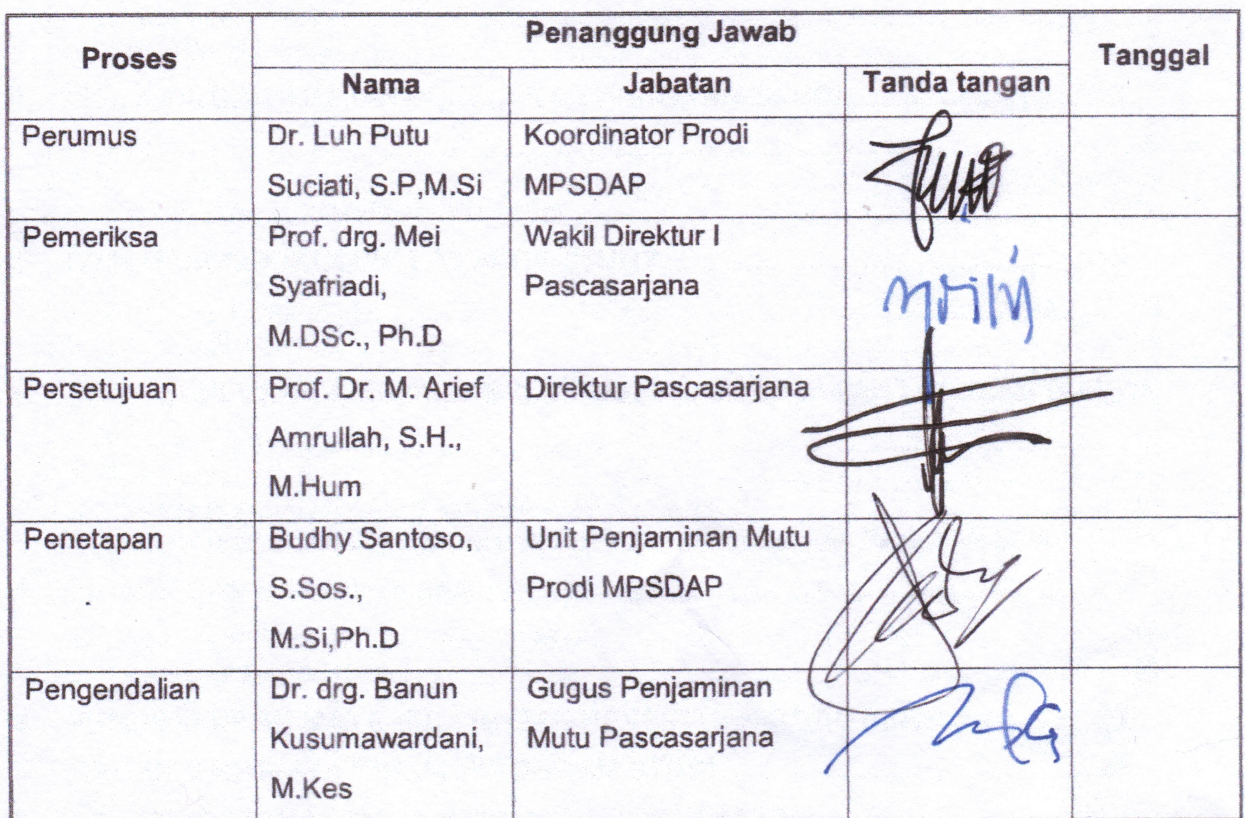 Proses
Penanggung Jawab
Tanggal
Nama
Jabatan
Tanda tangan
Perumus
Dr. Luh Putu
Suciati, S.P,M.Si
Koordinator Prodi
MPSDAP
Pemeriksa
Prof. drg. Mei
Syafriadi,
M.DSc., Ph.D
Wakil Direktur I
Pascasarjana
Persetujuan
Prof. Dr. M. Arief
Amrullah, S.H.,
M.Hum
Direktur Pascasarjana
Penetapan
Budhy Santoso,
S.Sos.,
M.Si,Ph.D
Unit Penjaminan Mutu
Prodi MPSDAP
Pengendalian
Dr. drg. Banun
Kusumawardani,
M.Kes
Gugus Penjaminan
Mutu Pascasarjana